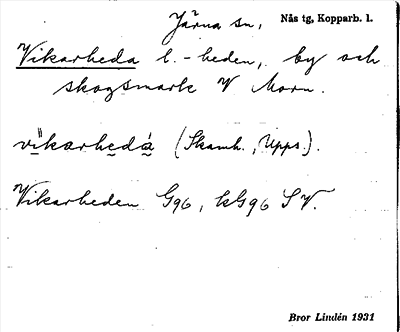 Järna sn, Nås tg, Kopparb. l.
Vikarheda l. -heden, by och
skogsmark V Morn.
vikarhedá (Skamh., Upps.).
Vikarheden G96, kG96 SV.
Bror Lindén 1931